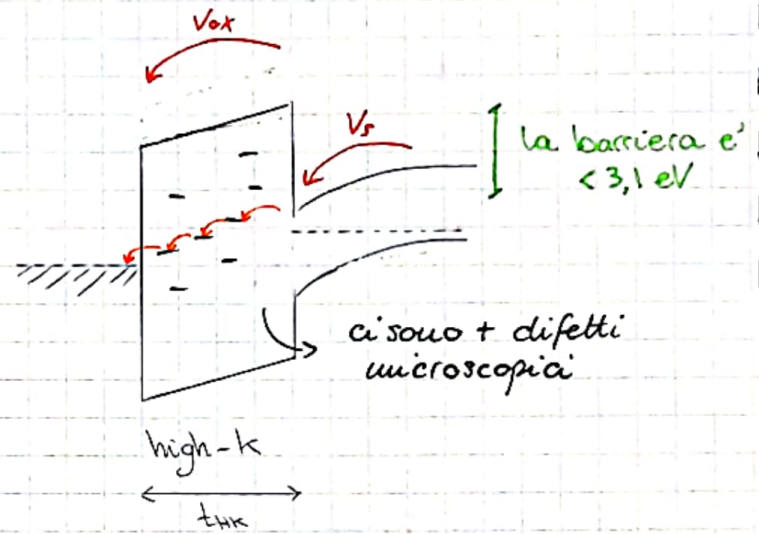 Vox
Vs
la barriera e'
< 3,1 eV
ci sono + difetti
microscopici
high-k
tHK